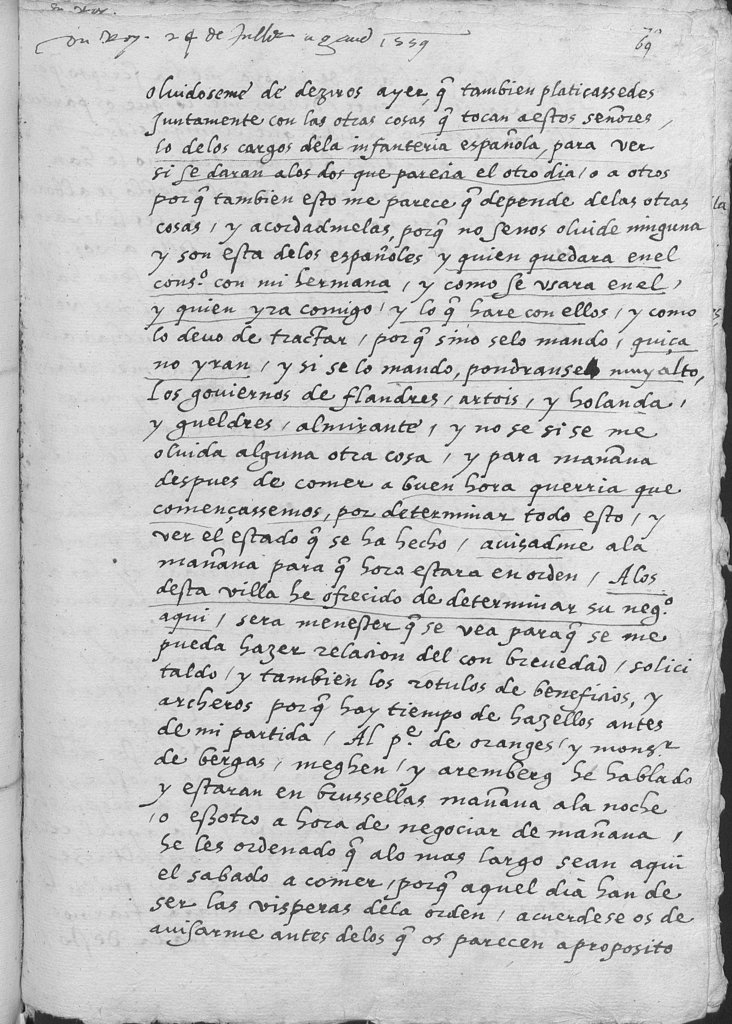 Du Roy. 24 de Jullet a gand 1559
69
olvidoseme de deziros ayer, q̃ tambien platicassedes
Juntamente con las otras cosas q̃ tocan a estos señores,
lo de los cargos dela infanteria española, para ver
si se daran alos dos que parecia el otro dia / o a otros
porq̃ tambien esto me parece q̃ depende delas otras
cosas / y acordadmelas, porq̃ no se nos olvide ninguna
y son esta delos españoles y quien quedara en el
cons.º con mi hermana / y como se usara en el /
y quien yra comigo / y lo q̃ hare con ellos / y como
lo devo de tractar / porq̃ sino selo mando / quiça
no yran / y si se lo mando, pondranse muy alto,
los goviernos de flandres / artois / y holanda /
y gueldres / almirante / y no se si se me
olvida alguna otra cosa / y para mañana
despues de comer a buen hora querria que
començassemos, por determinar todo esto / y
ver el estado q̃ se ha hecho / avisadme a la
mañana para q̃ hora estara en orden / Alos
desta villa he ofrecido de determinar su neg.º
aqui / sera menester q̃ se vea paraq̃ se me
pueda hazer relacion del con brevedad / solici
taldo / y tambien los rotulos de beneficios, y
archeros porq̃ hay tiempo de hazellos antes
de mi partida / Al p.e de oranges / y monsr
de bergas / meghen / y aremberg he hablado
y estaran en brussellas mañana ala noche
/ o essotro a hora de negociar de mañana /
he les ordenado q̃ alo mas largo sean aqui
el sabado a comer / porq̃ aquel dia han de
ser las visperas dela orden / acuerdese os de
avisarme antes delos q̃ os parecen aproposito